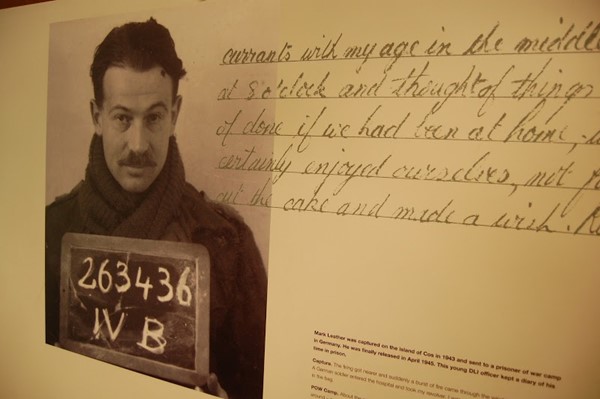 currants with my age in the middle
at 8 o'clock and thought of things
of done if we had been at home,
certainly enjoyed ourselves, not
out the cake and made a wish.
263436
IV B
Mark Leather was captured on the island of Cos in 1943 and sent to a prisoner of war camp
in Germany. He was finally released in April 1945. This young DLI officer kept a diary of his
time in prison.
Capture. The firing got nearer and suddenly a burst of fire came through the
A German soldier entered the hospital and took my revolver.
in the bag.
POW Camp.